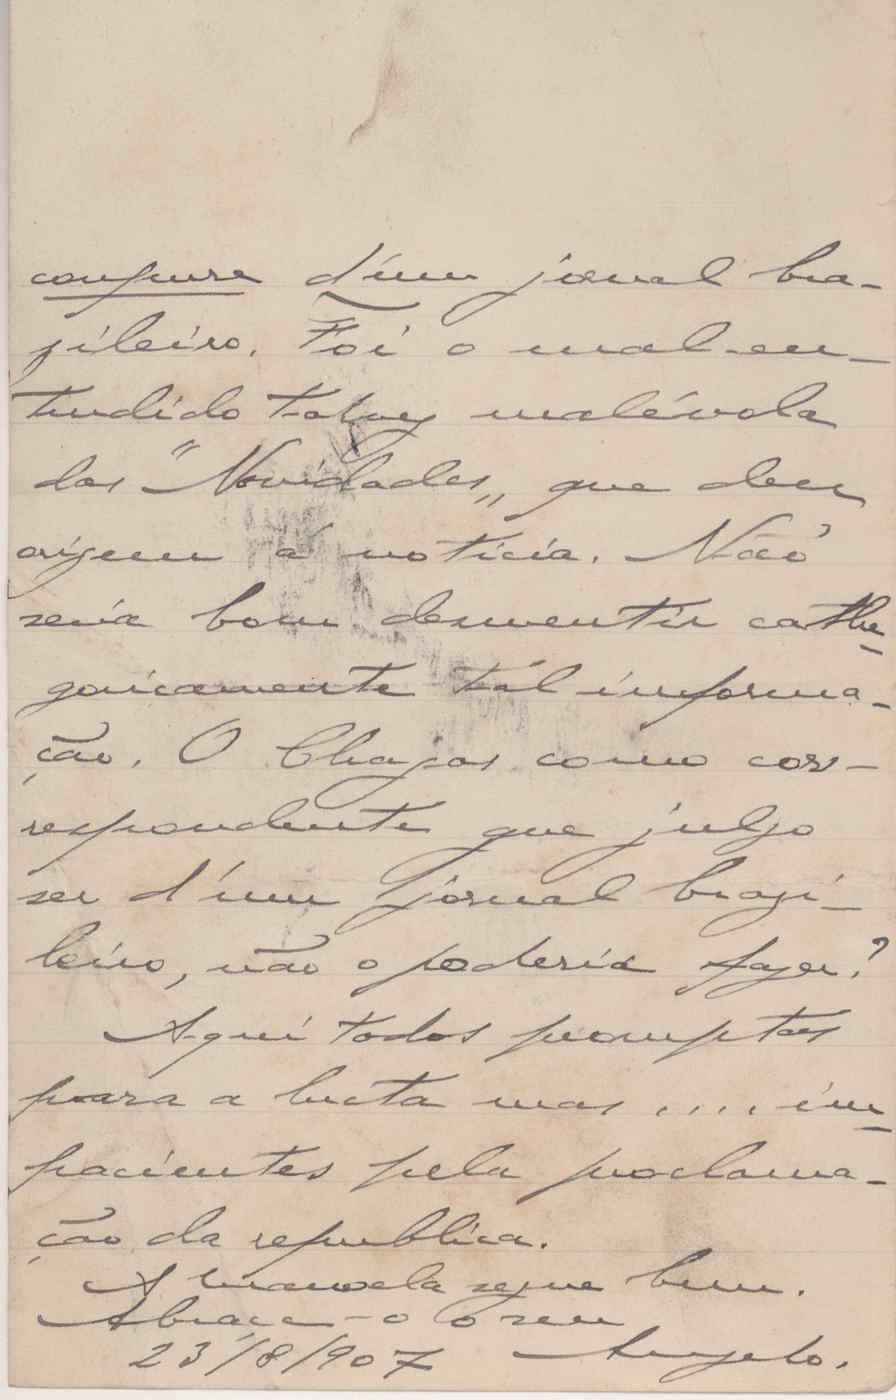 confrere d'um jornal bra-
zileiro. Foi o mal-en-
tendido talvez malévola
das "Novidades„ que deu
origem á noticia. Não
seria bom desmentir cathe-
goricamente tál informa-
ção. O Chagas como cor-
respondente que julgo
ser d'um jornal brazi-
leiro, não o poderia fazer?
Aqui todos promptos
para a lucta mas .... im-
pacientes pela proclama-
ção da republica.
A Manoela segue bem.
Abraça-o o seu
23/8/907 Angelo.